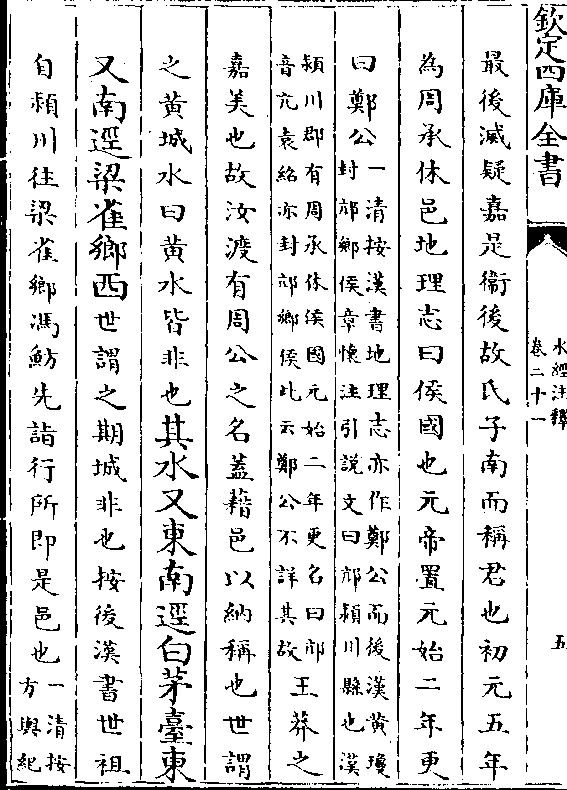 欽定四庫全書
水經注釋
卷二十一
五
最後滅疑嘉是衞後故氏子南而稱君也初元五年
為周承休邑地理志曰侯國也元帝置元始二年更
曰鄭公一清按漢書地理志亦作鄭公而後漢黄瓊
封邟鄉侯章懐注引説文曰邟潁川縣也漢
潁川郡有周承休侯國元始二年更名曰邟
音亢袁紹亦封邟鄉侯此云鄭公不詳其故王莽之
嘉美也故汝渡有周公之名蓋藉邑以納稱也世謂
之黄城水曰黄水皆非也其水又東南逕白茅臺東
又南逕梁雀鄉西世謂之期城非也按後漢書世祖
自潁川往梁雀鄉馮魴先詣行所即是邑也一清按
方輿紀